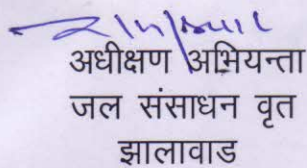 अधीक्षण अभियन्ता
जल संसाधन वृत
झालावाड